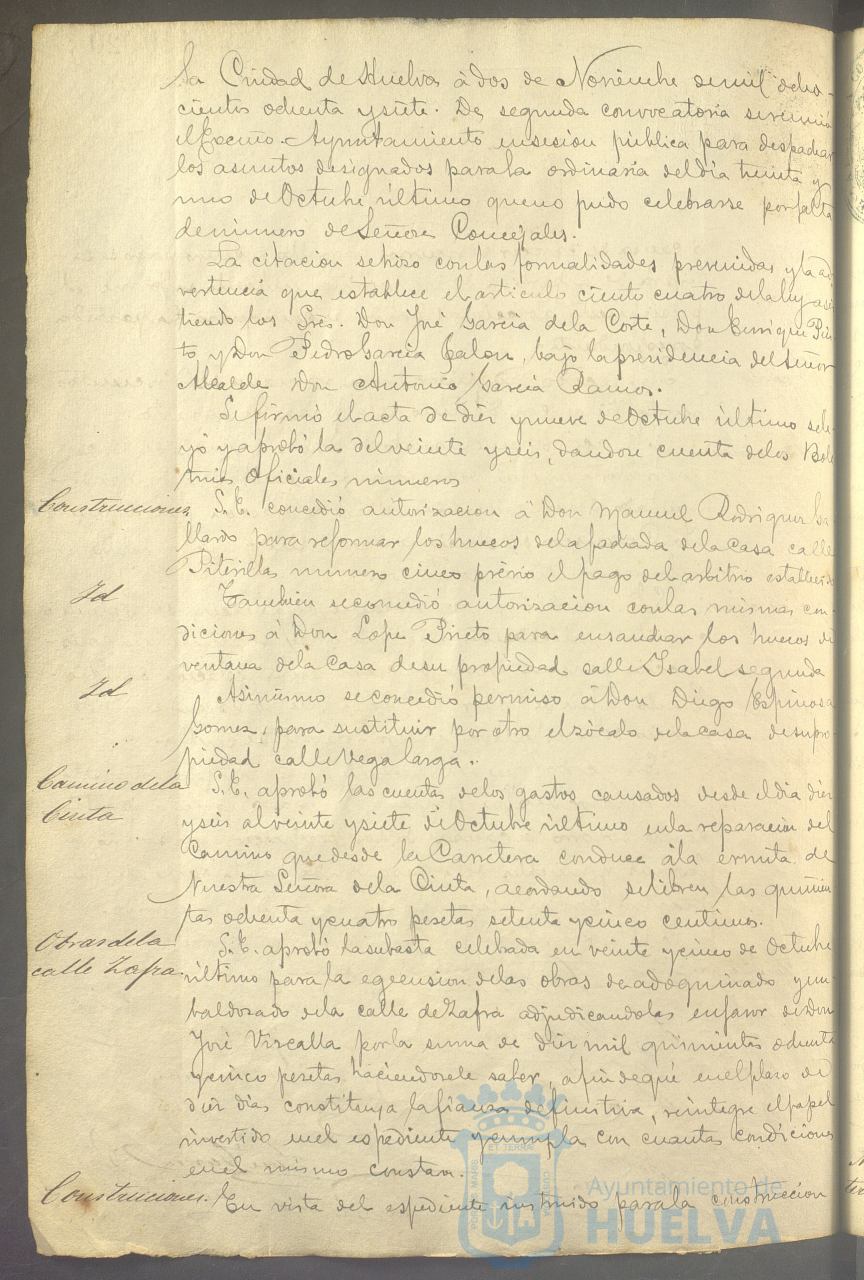 la Ciudad de Huelva á dos de Noviembre de mil ocho-
cientos ochenta y siete. De segunda convocatoria se reunió
el Excmo. Ayuntamiento en sesion pública para despachar
los asuntos designados para la ordinaria del dia treinta y
uno de Octubre último que no pudo celebrarse por falta
de número de Señores Concejales.
La citacion se hizo con las formalidades prevenidas y la ad
vertencia que establece el articulo ciento cuatro de la ley asis
tiendo los Sres. Don José Garcia de la Corte, Don Enrique Pin
to y Don Pedro Garcia Jalon, bajo la presidencia del Señor
Alcalde Don Antonio Garcia Ramos.
Se firmó el acta de diez y nueve de Octubre último se le
yó y aprobó la del veinte y seis, dandose cuenta de los Bole
tines oficiales números
Construcciones S.E. concedió autorizacion á Don Manuel Rodriguez Ga
llardo para reformar los huecos de la fachada de la casa calle
Piterilla número cinco prévio el pago del arbitrio establecido
Id Tambien se concedió autorizacion con las mismas con-
diciones á Don Lope Prieto para ensanchar los huecos de
ventana de la casa de su propiedad calle Isabel segunda
Id Asinismo se concedió permiso á Don Diego Espinosa
Gomez, para sustituir por otro el zócalo de la casa de su pro
piedad calle Vega larga.
Camino de la S.E. aprobó las cuentas de los gastos causados desde el dia diez
Cinta y seis al veinte y siete de Octubre último en la reparacion del
Camino que desde la Carretera conduce á la ermita de
Nuestra Señora de la Cinta, acordando se libren las quinien
tas ochenta y cuatro pesetas setenta y cinco centimos.
Obras de la S.E. aprobó la subasta celebrada en veinte y cinco de Octubre
calle Zafra. último para la egecusion de las obras de adoquinado y em
baldosado de la calle de Zafra adjudicandolas en favor de Don
José Vizcalla por la suma de diez mil quinientas ochenta
y cinco pesetas haciendosele saber, a fin de que en el plazo de
diez dias constituya la fianza definitiva, reintegre el papel
invertido en el espediente y cumpla con cuantas condiciones
en el mismo constan.
Construciones. En vista del espediente instruido para la construccion
Ayuntamiento de
HUELVA